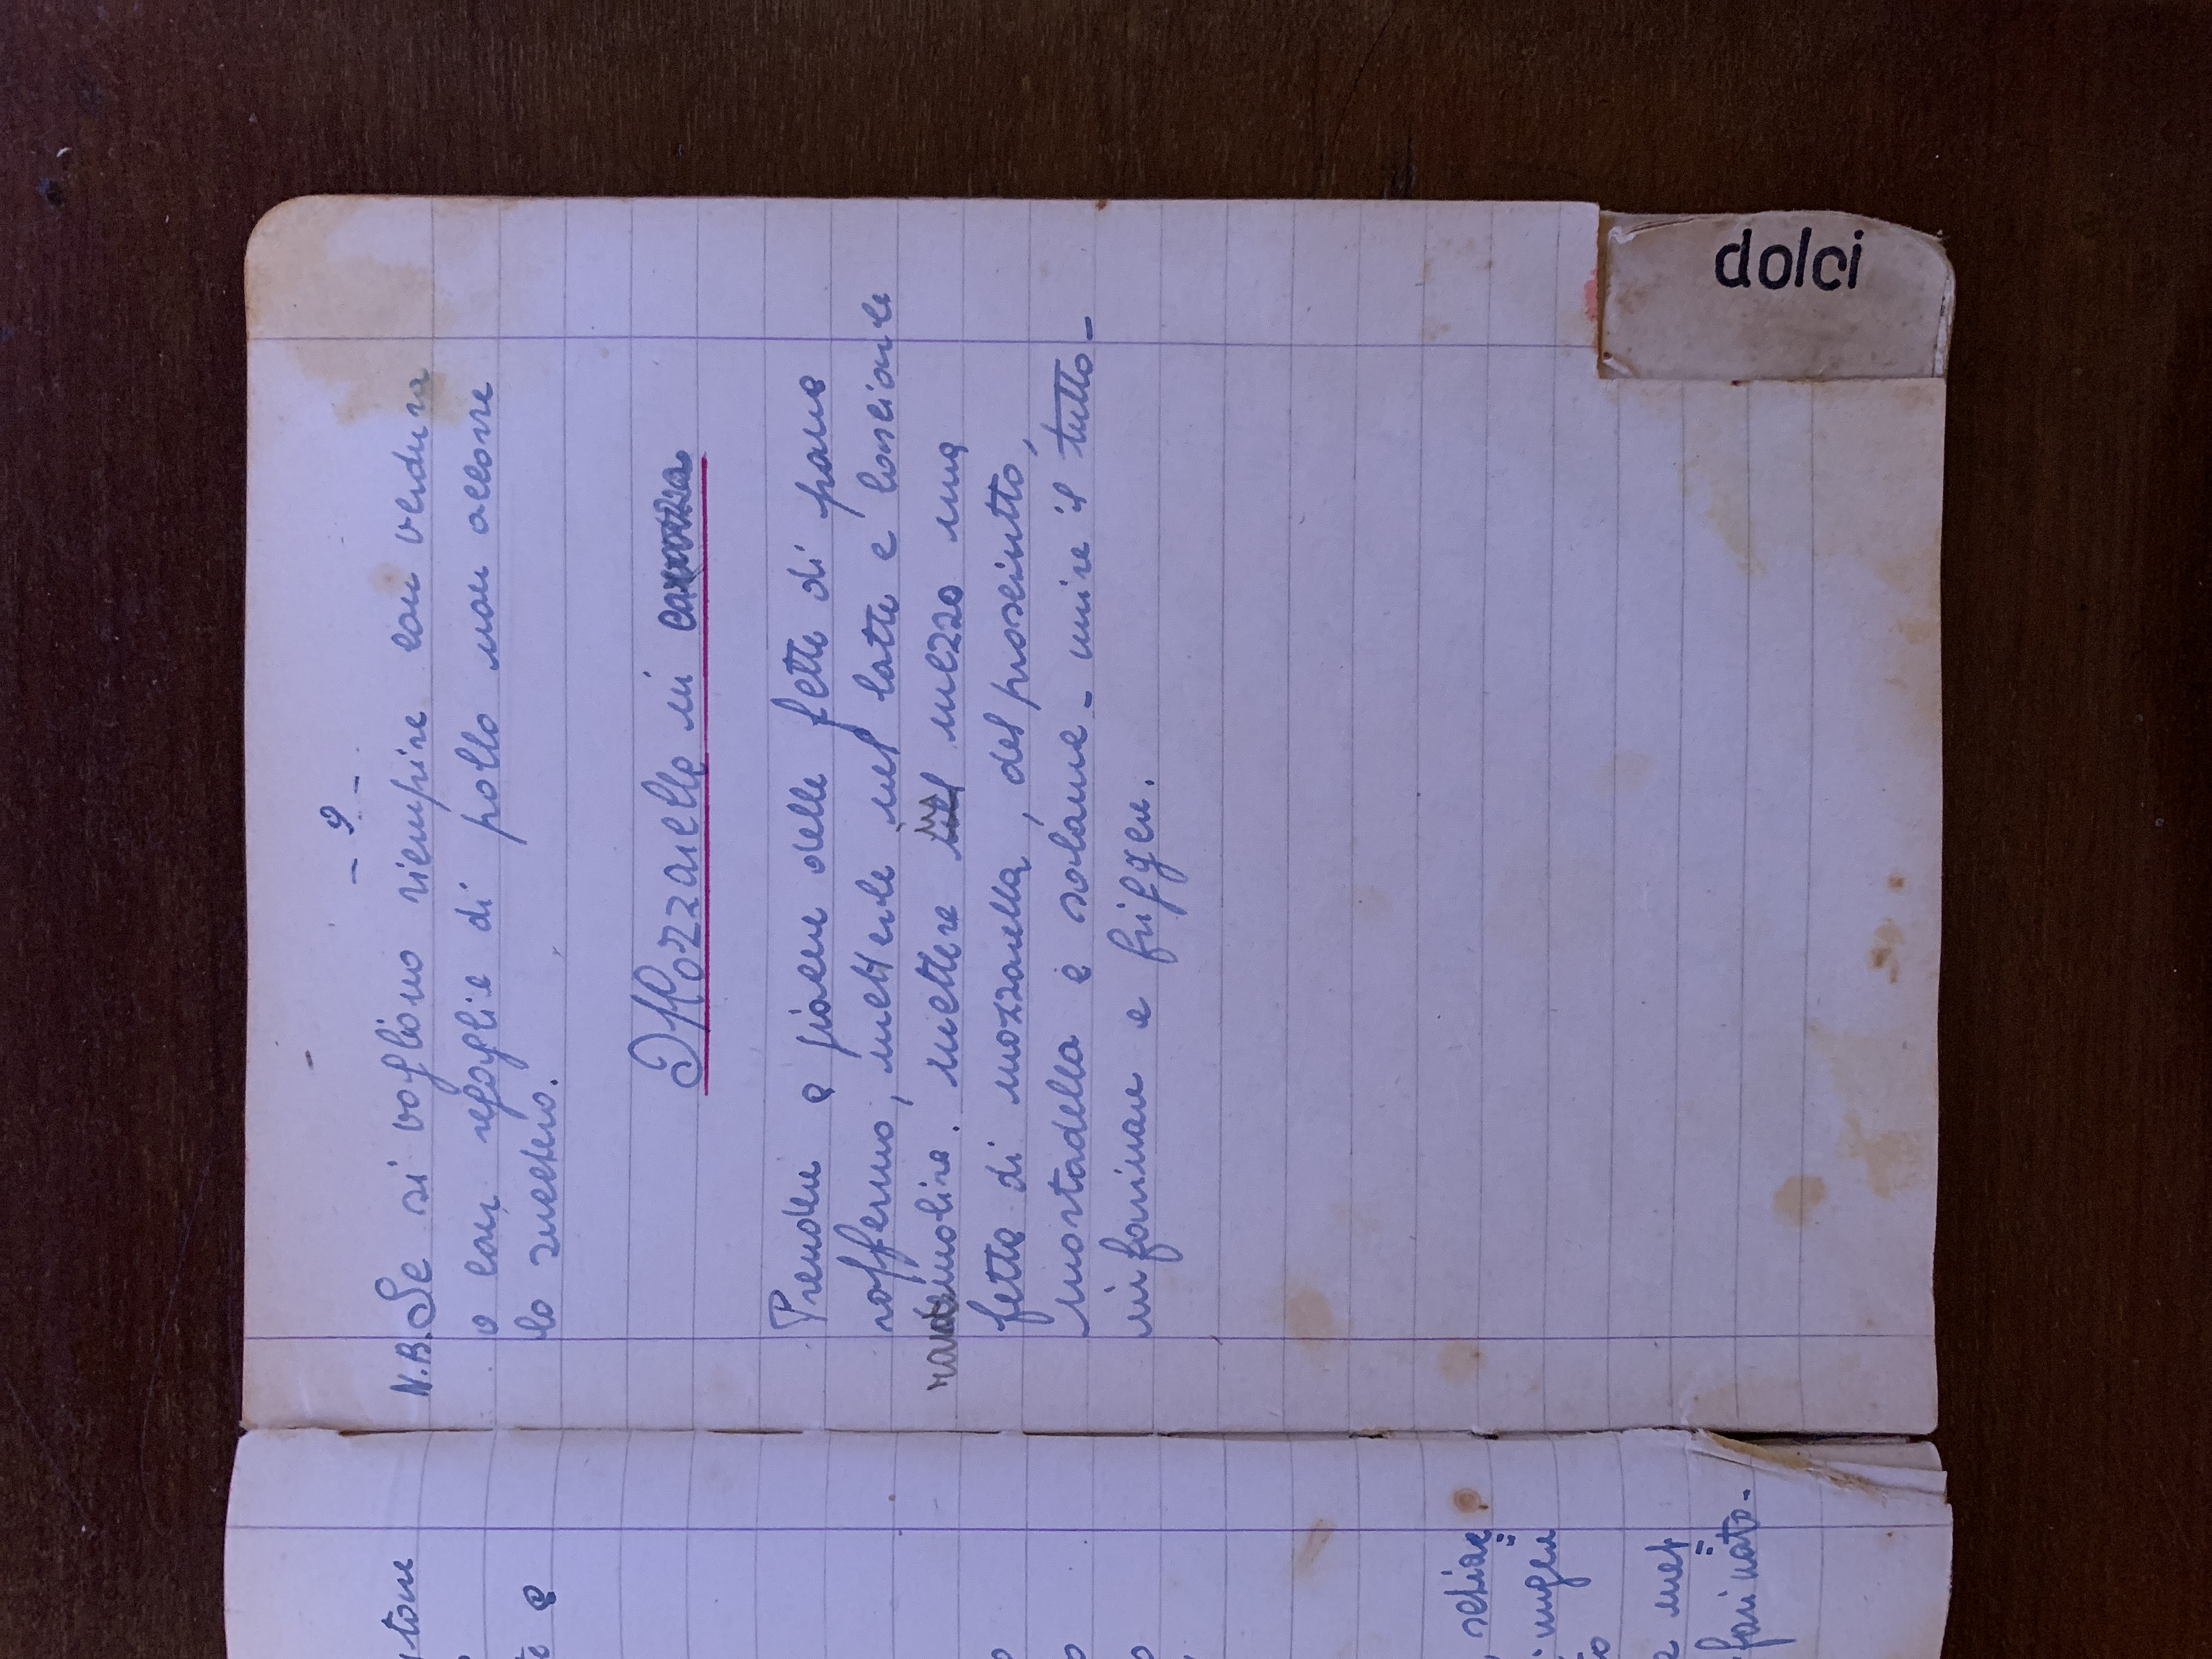 - 9 -
N.B. Se si vogliono riempire con verdura
o con regaglie di pollo non occorre
lo zucchero.
Mozzarelle in carrozza
Prendere a piacere delle fette di pane
raffermo, metterle nel latte e lasciarle
rammolire. mettere in mezzo una
fetta di mozzarella, del prosciutto,
mortadella e salame - unire il tutto -
infarinare e friggere.
dolci